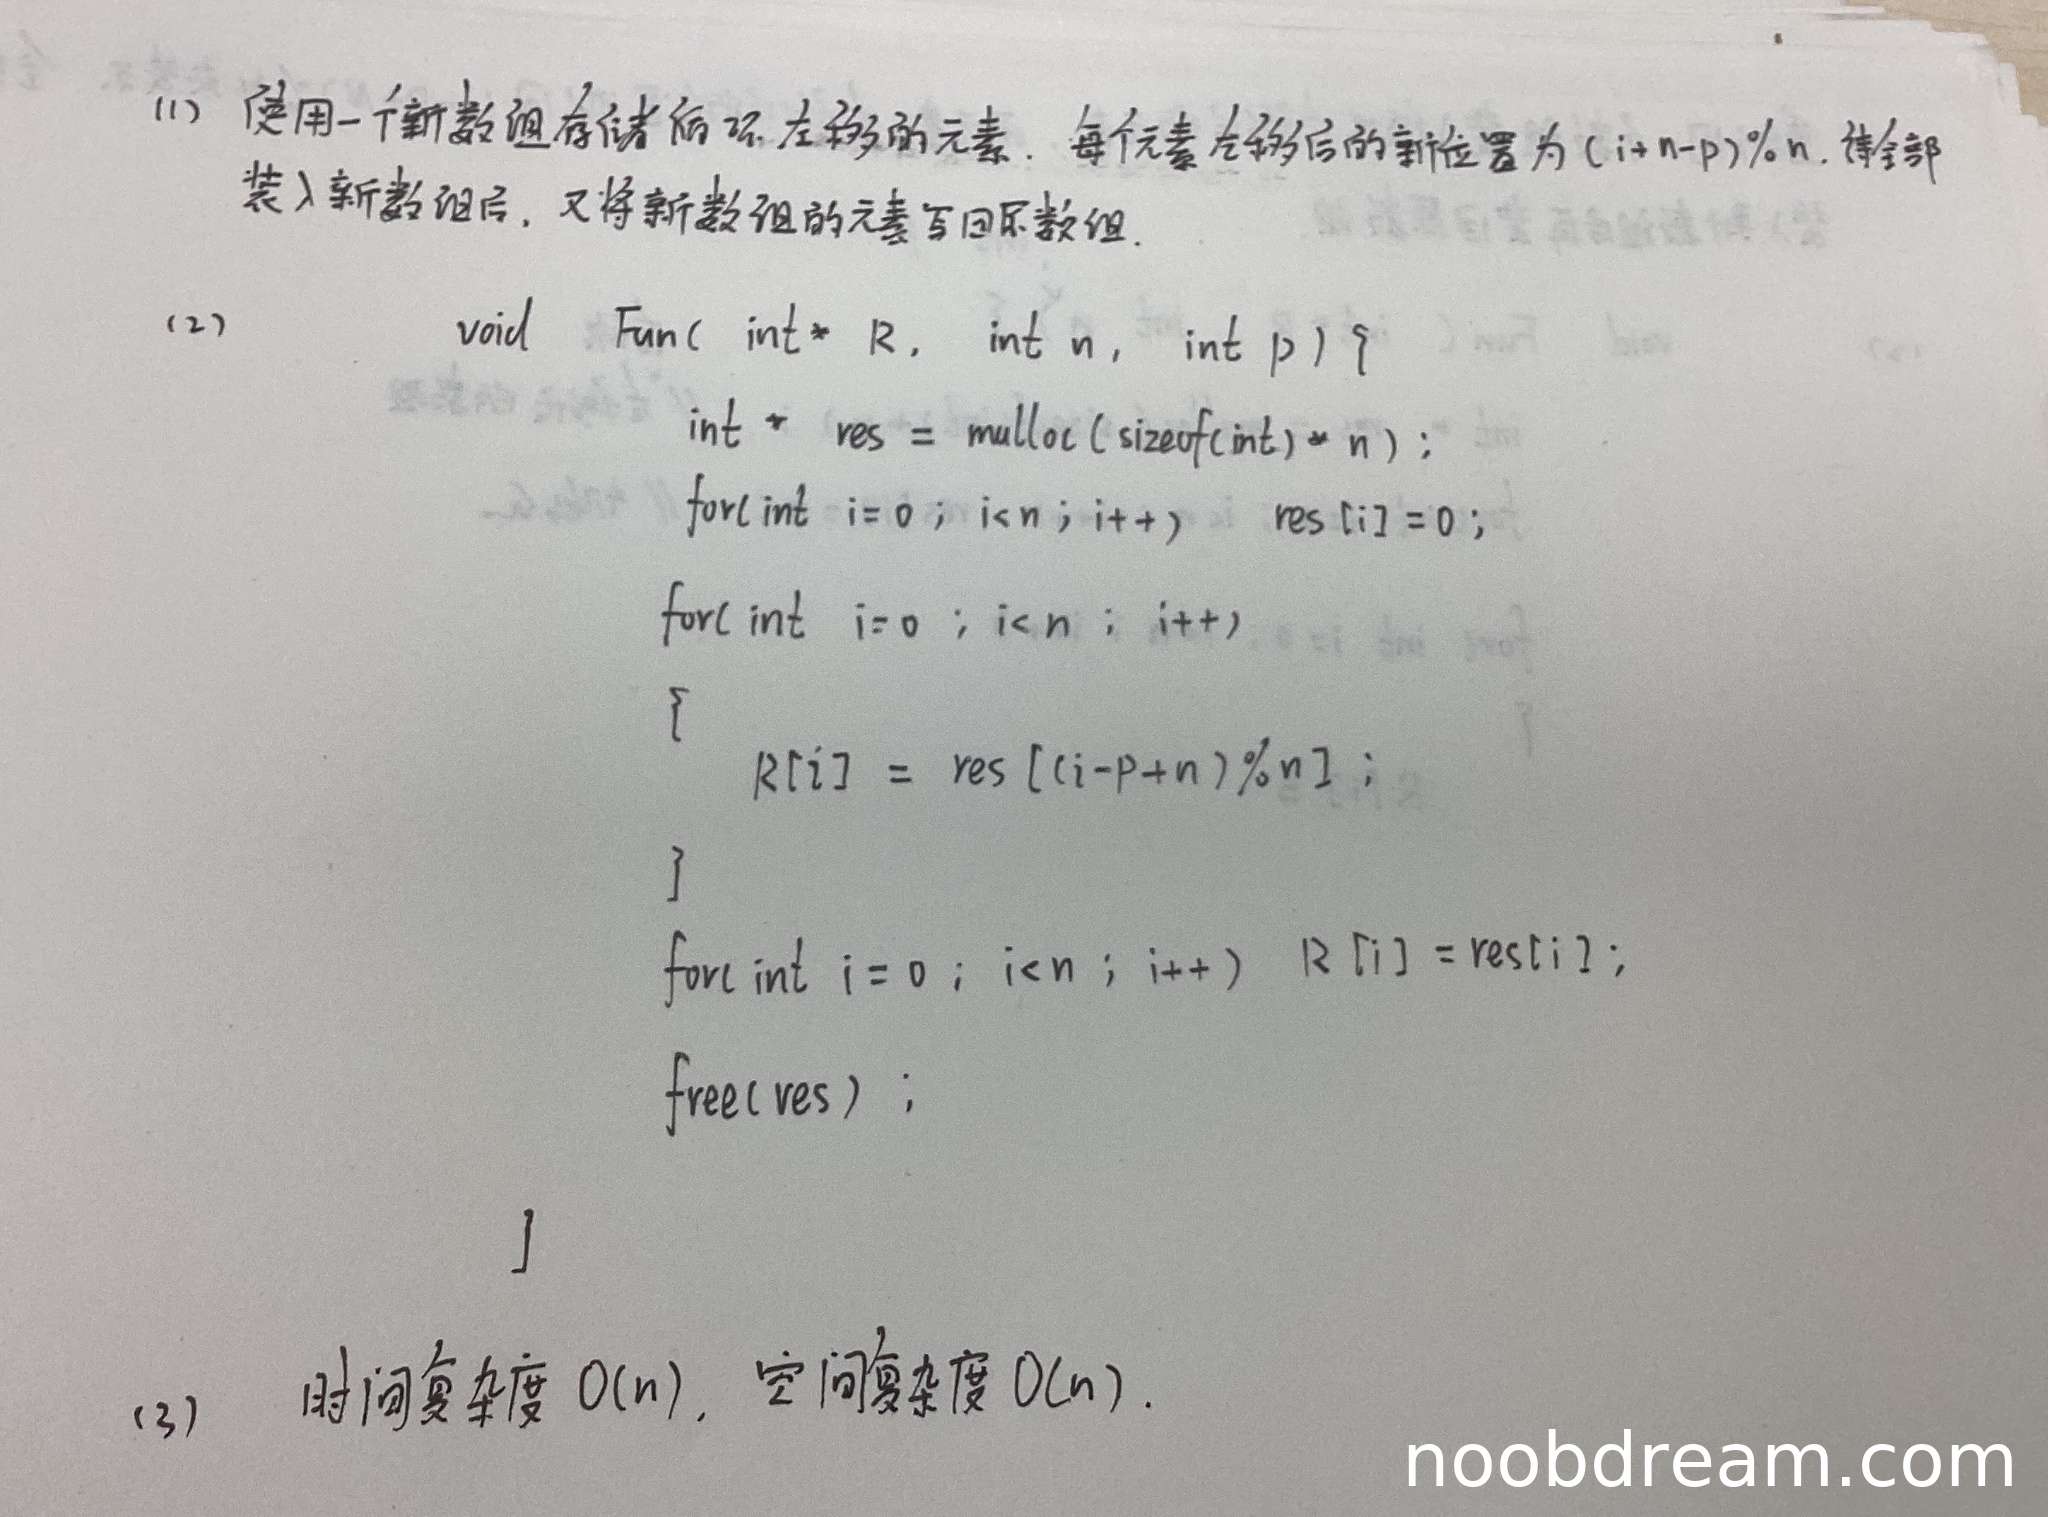 (1) 使用一个新数组存储循环左移的元素. 每个元素左移后的新位置为(i+n-p)%n. 待全部
装入新数组后, 又将新数组的元素写回原数组.
(2) void Fun( int* R, int n, int p) {
int * res = mulloc(sizeof(int)* n) ;
for(int i=0 ; i<n ; i++) res[i]=0 ;
for( int i=0 ; i<n ; i++)
{
R[i] = res[(i-p+n)%n] ;
}
for( int i=0 ; i<n ; i++) R[i] =res[i] ;
free(res) ;
}
(3) 时间复杂度 O(n), 空间复杂度 O(n).
noobdream.com